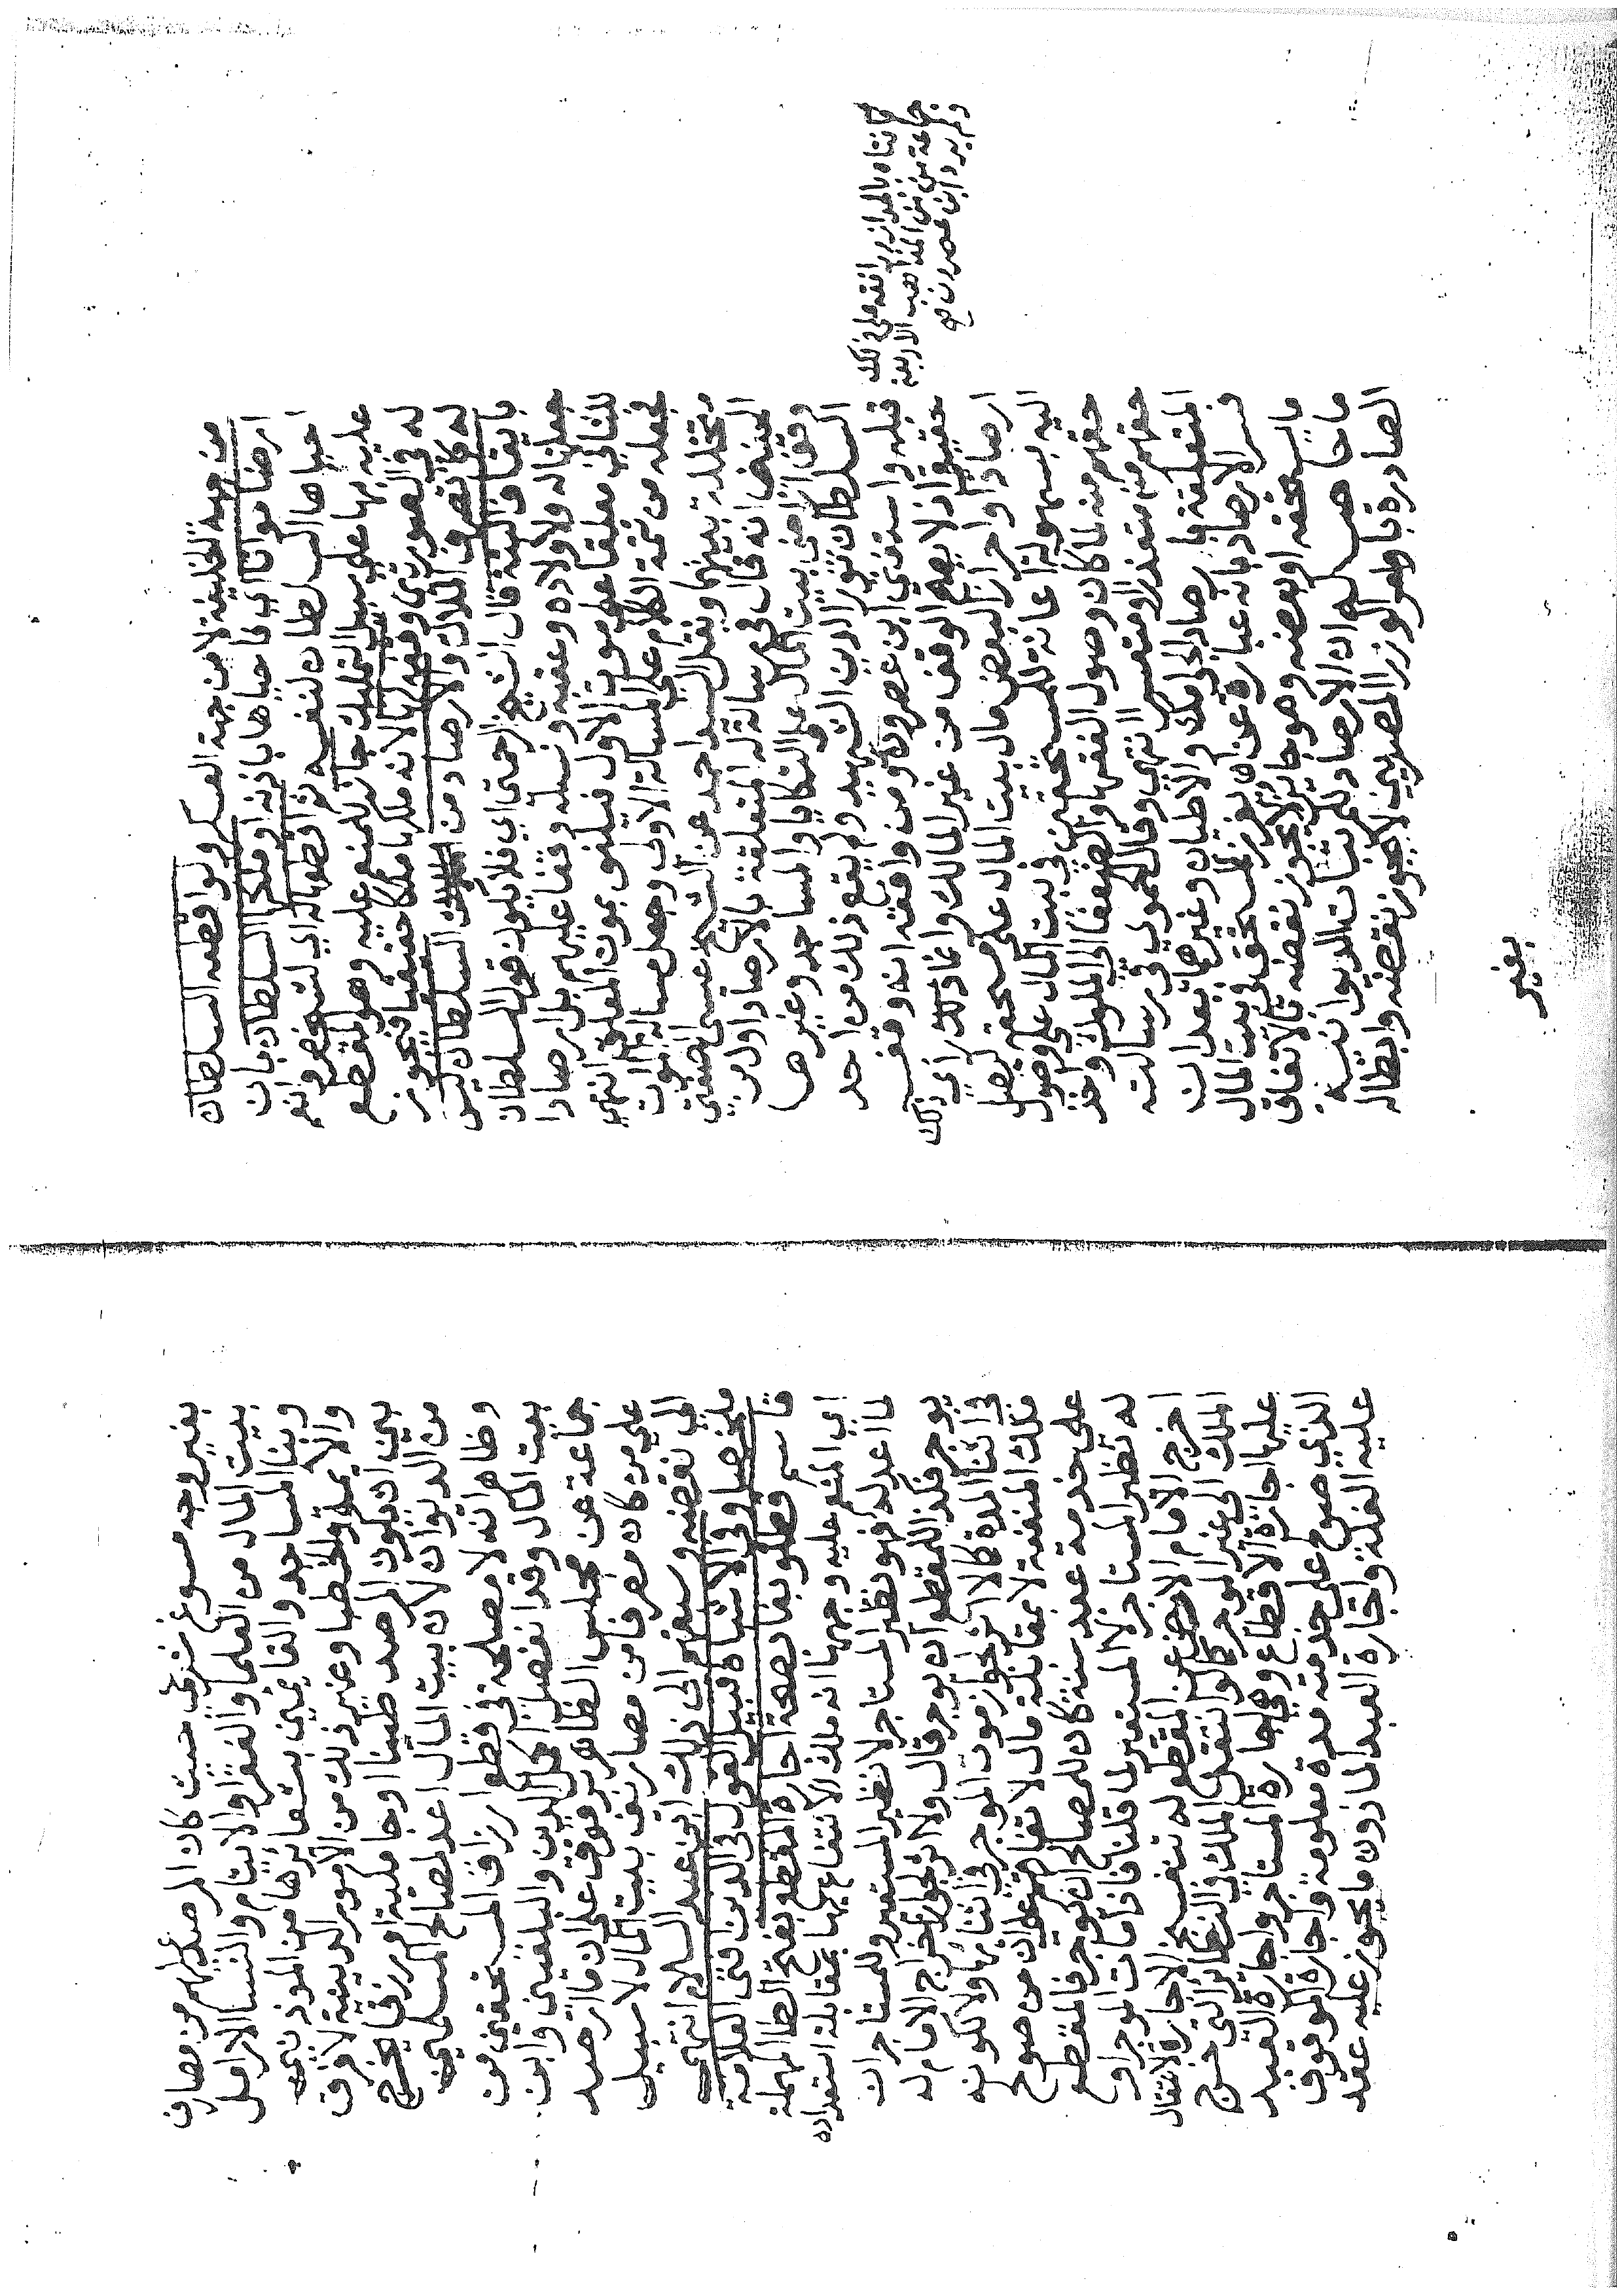 من جهة الخليفة لا من جهة العسكر ولو اقطعه السلطان
ارضا مواتا اي فاحياها باذنه او ملكها السلطان بان
احياها السلطان لنفسه ثم اقطعها له اي لشخص وانعم
عليه بها على سبيل التمليك جاز للمنعم عليه وهو المقطع
له في الصورتين وقفها لانه ملكها ملكا حقيقيا فيجوز
له كما تصرف الملاك والارصاد من السلطان ليس
بايقاف البتة قال الشيخ الرحمتي اي فلا يكون قول السلطان
جعلناه له ولاولاده وعقبه ونسله وقفا عليهم بل ارصادا
للثاني معلقا على موت الاول فيلغو بموت المعلق انتهى
جعله من تتمة الكلام على المسألة الاولى وجعل مسألة الموت
متخللة بينهما ونقل السيد احمد عن الشيخ عيسى الصفتي
الحنفي انه قال في رسالة له المتعلقة بالارصاد اول من
وقف اراضي بيت المال على التكايا والمساجد وغيرها
السلطان نور الدين الشهيد ولم يقع ذلك من احد
قبله واستفتى ابن عصرون ومن وافقه انه وقف
حقيقي اذ لا يصح الوقف من غير المالك وانما ذلك رأي ذلك
ارصادا وافراز البعض مال بيت المال على مستحقه ليصل
اليه بسهولة اعانة للمستحقين في بيت المال على وصول
حقهم منه لما كان وصول الفقهاء والضعفاء الى الملوك واخذ
حقهم منه متعذرا او متعسرا انتهى وقال الحموي في رسالته
المتعلقة بارصاد الجوامك والاطيان وغيرها بعد ان
فسر الارصاد بانه عبارة عن ان يفرز لمستحق في بيت المال
ما يستحقه او بعضه وهو جائز لا يجوز نقضه بالاتفاق
ما حاصله ان الارصاد لكرنبات الديوانية
الصادرة باوامر الوزراء المصريين لا يجوز نقضه وابطاله
كما بيناه بالهوامش وافقه على ذلك
جماعة من المذاهب الاربعة
ولم يرد ابن عصرون صح
بغير
بغير وجه مسوغ شرعي حيث كان المرصد عليهم من مصارف
بيت المال من العلما والفقرا والايتام والنسا الارامل
وبنا المساجد والقائمين بشعائرها من المؤذنين
والائمة والخطبا وغير ذلك من الامور الدينية لا فرق
بين ان يكون المرصد طينا او جامكية او رزقا يخرج
من الديوان لان بيت المال اعد لمصالح المسلمين
وظاهر انه لا مصلحة في قطع ارزاق المستحقين من
بيت المال وقد انفصل اكمل الدين والبلقيني وابن
جماعة عن مجلس الظاهر برقوق على ان ما ارصد
على من كان مصرفا من مصاريف بيت المال لا سبيل
الى نقضه وسبقهم الى ذلك ابن عبد السلام انتهى
ملخصا وفي الاشباه قبيل القول في الدين افتى العلامة
قاسم قطلوبغا بصحة اجارة المقطع بفتح الطا المهملة
اي المنعم عليه وجهها انه ملك الانتفاع بها بمقابلة استعداده
لما اعد له فهو نظير المستاجر لا نظير المستعير وللمستاجر ان
يوجر فكذا للمقطع ان يوجر قال ولا اثر لجواز اخراج الامام له
في اثنا المدة كما لا اثر لجواز موت الموجر في اثنائها ولا لكونه
ملك المنفعة لا بمقابلة مال لاتفاقهم على ان من صولح
على خدمة عبد سنة كان للمصالح ان يوجره فالمقطع
له نظير المستاجر لا المستعير لما قلنا فاذا مات الموجر او
اخرج الامام الارض عن المقطع له تنفسخ الاجارة لانتقال
الملك الى غير الموجر كما لو انتقل الملك في النظائر التي خرج
عليها اجارة الاقطاع وهي اجارة المستاجر واجارة العبد
الذي صولح على خدمته مدة معلومة واجارة الموقوف
عليه الغلة واجارة العبد الماذون ما يجوز عليه عقد